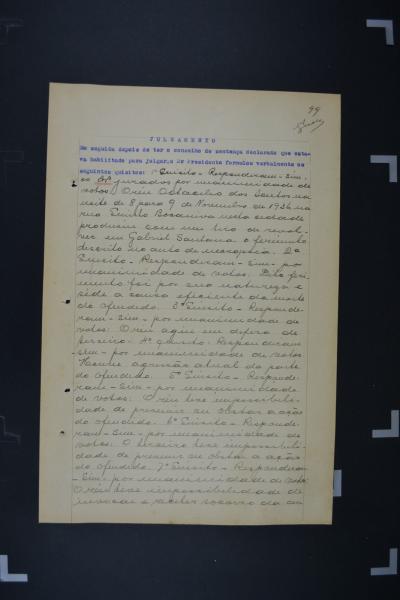 99
JULGAMENTO
Em seguida depois de ter o conselho de sentença declarado que esta-
va habilitado para julgar, o Dr Presidente formulou verbalmente os
seguintes quisitos: 1º Quisito - Responderam - Sim,
os jurados por unanimidade de
votos. O réu Octacilio dos Santos na
noite de 8 para 9 de Novembro de 1936 na
rua Quintino Bocayuva nesta cidade
produziu com um tiro de revol-
ver em Gabriel Santana o ferimento
descrito no auto de necropsia. 2º
Quisito - Responderam - Sim - por
unanimidade de votos. Este feri-
mento foi por sua natureza e
séde a causa eficiente da morte
do ofendido. 3º Quisito - Responde-
ram - Sim - por unanimidade de
votos: O réu agiu em defesa de
terceiro. 4º quisito: Responderam
sim - por unanimidade de votos
Houve agressão atual da parte
do ofendido. 5º Quisito - Responde-
ram - Sim - por unanimidade
de votos: O réu teve impossibili-
dade de prevenir ou obstar a ação
do ofendido. 6º Quisito - Responde-
ram - Sim - por unanimidade de
votos: O terceiro teve impossibili-
dade de prevenir ou obstar a ação
do ofendido. 7º Quisito - Responderam
- Sim - por unanimidade de votos
O réu teve impossibilidade de
invocar e receber socorro da au